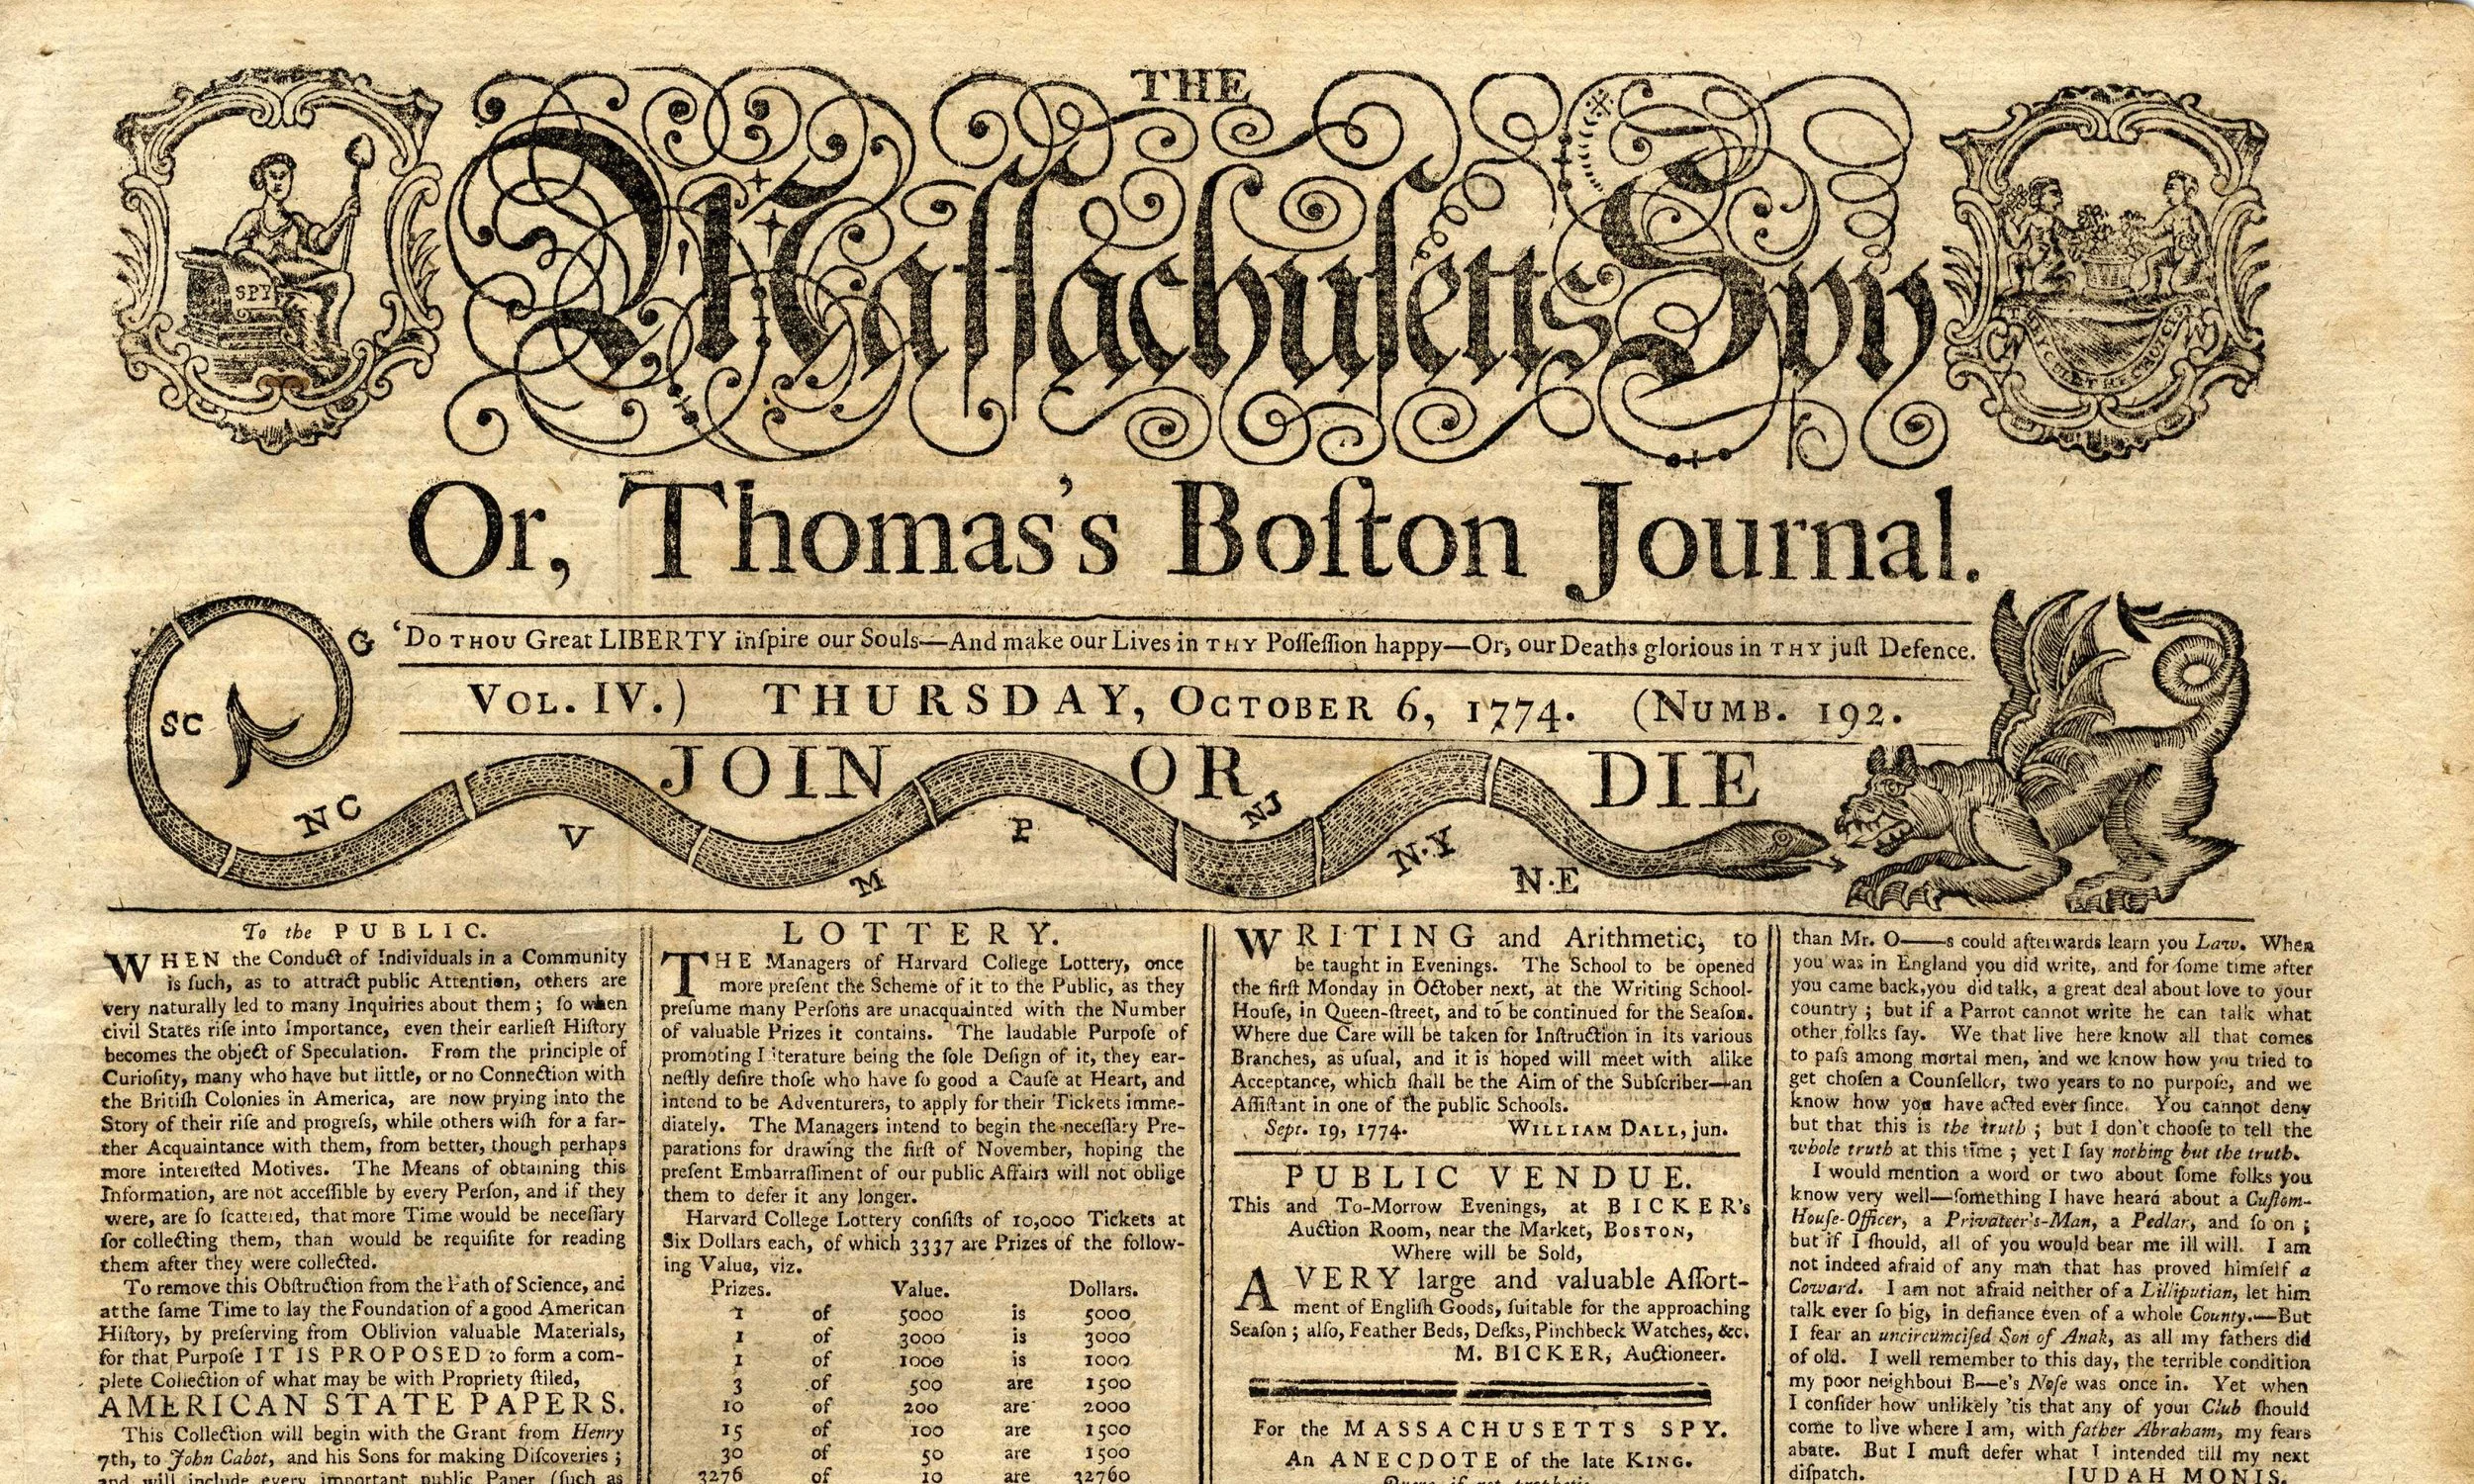 THE
Maſſachuſetts Spy
SPY
Or, Thomas's Boſton Journal.
'Do THOU Great LIBERTY inſpire our Souls—And make our Lives in THY Poſſeſſion happy—Or, our Deaths glorious in THY juſt Defence.
VOL. IV.) THURSDAY, OCTOBER 6, 1774. (NUMB. 192.
JOIN OR DIE
G
SC
NC
V
M
P
NJ
N.Y
N.E
To the PUBLIC.
WHEN the Conduct of Individuals in a Community
is ſuch, as to attract public Attention, others are
very naturally led to many Inquiries about them; ſo when
civil States riſe into Importance, even their earlieſt Hiſtory
becomes the object of Speculation. From the principle of
Curioſity, many who have but little, or no Connection with
the Britiſh Colonies in America, are now prying into the
Story of their riſe and progreſs, while others wiſh for a far-
ther Acquaintance with them, from better, though perhaps
more intereſted Motives. The Means of obtaining this
Information, are not acceſſible by every Perſon, and if they
were, are ſo ſcattered, that more Time would be neceſſary
for collecting them, than would be requiſite for reading
them after they were collected.
To remove this Obſtruction from the Path of Science, and
at the ſame Time to lay the Foundation of a good American
Hiſtory, by preſerving from Oblivion valuable Materials,
for that Purpoſe IT IS PROPOSED to form a com-
plete Collection of what may be with Propriety ſtiled,
AMERICAN STATE PAPERS.
This Collection will begin with the Grant from Henry
7th, to John Cabot, and his Sons for making Diſcoveries;
and will include every important public Paper (ſuch as
LOTTERY.
THE Managers of Harvard College Lottery, once
more preſent the Scheme of it to the Public, as they
preſume many Perſons are unacquainted with the Number
of valuable Prizes it contains. The laudable Purpoſe of
promoting Literature being the ſole Deſign of it, they ear-
neſtly deſire thoſe who have ſo good a Cauſe at Heart, and
intend to be Adventurers, to apply for their Tickets imme-
diately. The Managers intend to begin the neceſſary Pre-
parations for drawing the firſt of November, hoping the
preſent Embarraſſment of our public Affairs will not oblige
them to defer it any longer.
Harvard College Lottery conſiſts of 10,000 Tickets at
Six Dollars each, of which 3337 are Prizes of the follow-
ing Value, viz.
Prizes. Value. Dollars.
1 of 5000 is 5000
1 of 3000 is 3000
1 of 1000 is 1000
3 of 500 are 1500
10 of 200 are 2000
15 of 100 are 1500
30 of 50 are 1500
3276 of 10 are 32760
WRITING and Arithmetic, to
be taught in Evenings. The School to be opened
the firſt Monday in October next, at the Writing School-
Houſe, in Queen-ſtreet, and to be continued for the Seaſon.
Where due Care will be taken for Inſtruction in its various
Branches, as uſual, and it is hoped will meet with alike
Acceptance, which ſhall be the Aim of the Subſcriber—an
Aſſiſtant in one of the public Schools.
Sept. 19, 1774. WILLIAM DALL, jun.
PUBLIC VENDUE.
This and To-Morrow Evenings, at BICKER's
Auction Room, near the Market, BOSTON,
Where will be Sold,
A VERY large and valuable Aſſort-
ment of Engliſh Goods, ſuitable for the approaching
Seaſon; alſo, Feather Beds, Deſks, Pinchbeck Watches, &c.
M. BICKER, Auctioneer.
For the MASSACHUSETTS SPY.
An ANECDOTE of the late KING.
than Mr. O——s could afterwards learn you Law. When
you was in England you did write, and for ſome time after
you came back, you did talk, a great deal about love to your
country; but if a Parrot cannot write he can talk what
other folks ſay. We that live here know all that comes
to paſs among mortal men, and we know how you tried to
get choſen a Counſellor, two years to no purpoſe, and we
know how you have acted ever ſince. You cannot deny
but that this is the truth; but I don't chooſe to tell the
whole truth at this time; yet I ſay nothing but the truth.
I would mention a word or two about ſome folks you
know very well—ſomething I have heard about a Cuſtom-
Houſe-Officer, a Privateer's-Man, a Pedlar, and ſo on;
but if I ſhould, all of you would bear me ill will. I am
not indeed afraid of any man that has proved himſelf a
Coward. I am not afraid neither of a Lilliputian, let him
talk ever ſo big, in defiance even of a whole County.—But
I fear an uncircumciſed Son of Anak, as all my fathers did
of old. I well remember to this day, the terrible condition
my poor neighbour B—e's Noſe was once in. Yet when
I conſider how unlikely 'tis that any of your Club ſhould
come to live where I am, with father Abraham, my fears
abate. But I muſt defer what I intended till my next
diſpatch. JUDAH MONIS.